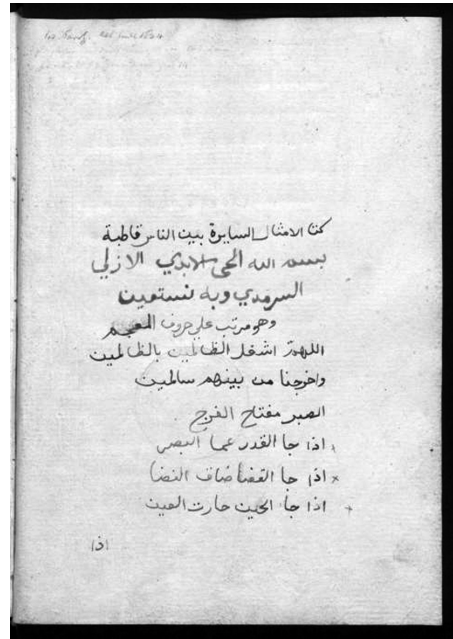 كتا الامثال السايرة بين الناس قاطبة
بسم الله الحي الابدي الازلي
السرمدي وبه نستعين
وهو مرتب علي حروف المعجم
اللهم اشغل الظالمين بالظالمين
واخرجنا من بينهم سالمين
الصبر مفتاح الفرج
اذا جا القدر عما البصر
اذا جا القضا ضاق الفضا
اذا جا الحين حارت العين
اذا